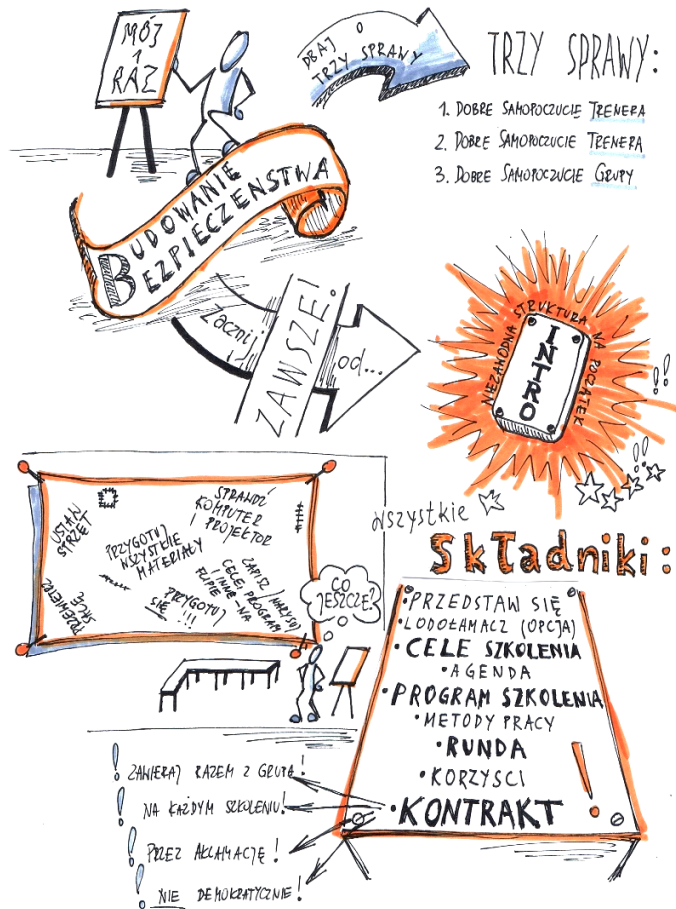 MÓJ
1
RAZ
DBAJ O
TRZY SPRAWY
TRZY SPRAWY:
1. DOBRE SAMOPOCZUCIE TRENERA
2. DOBRE SAMOPOCZUCIE TRENERA
3. DOBRE SAMOPOCZUCIE GRUPY
BUDOWANIE
BEZPIECZEŃSTWA
Zacznij
ZAWSZE!
od...
NIEZAWODNA STRUKTURA NA POCZĄTEK
INTRO
!!
!!
USTAW
SPRZĘT
SPRAWDŹ
KOMPUTER
I PROJEKTOR
PRZYGOTUJ
WSZYSTKIE
MATERIAŁY
ZAPISZ / NARYSUJ
CELE, PROGRAM
I INNE - NA
FLIPIE
PRZEWIETRZ
SALĘ
PRZYGOTUJ
SIĘ !!!
CO
JESZCZE?
Wszystkie
Składniki:
• PRZEDSTAW SIĘ
• LODOŁAMACZ (OPCJA)
• CELE SZKOLENIA
• AGENDA
• PROGRAM SZKOLENIA
• METODY PRACY
• RUNDA
• KORZYSCI
• KONTRAKT
!
! ZAWIERAJ RAZEM Z GRUPĄ!
! NA KAŻDYM SZKOLENIU!
! PRZEZ AKLAMACJĘ!
! NIE DEMOKRATYCZNIE!